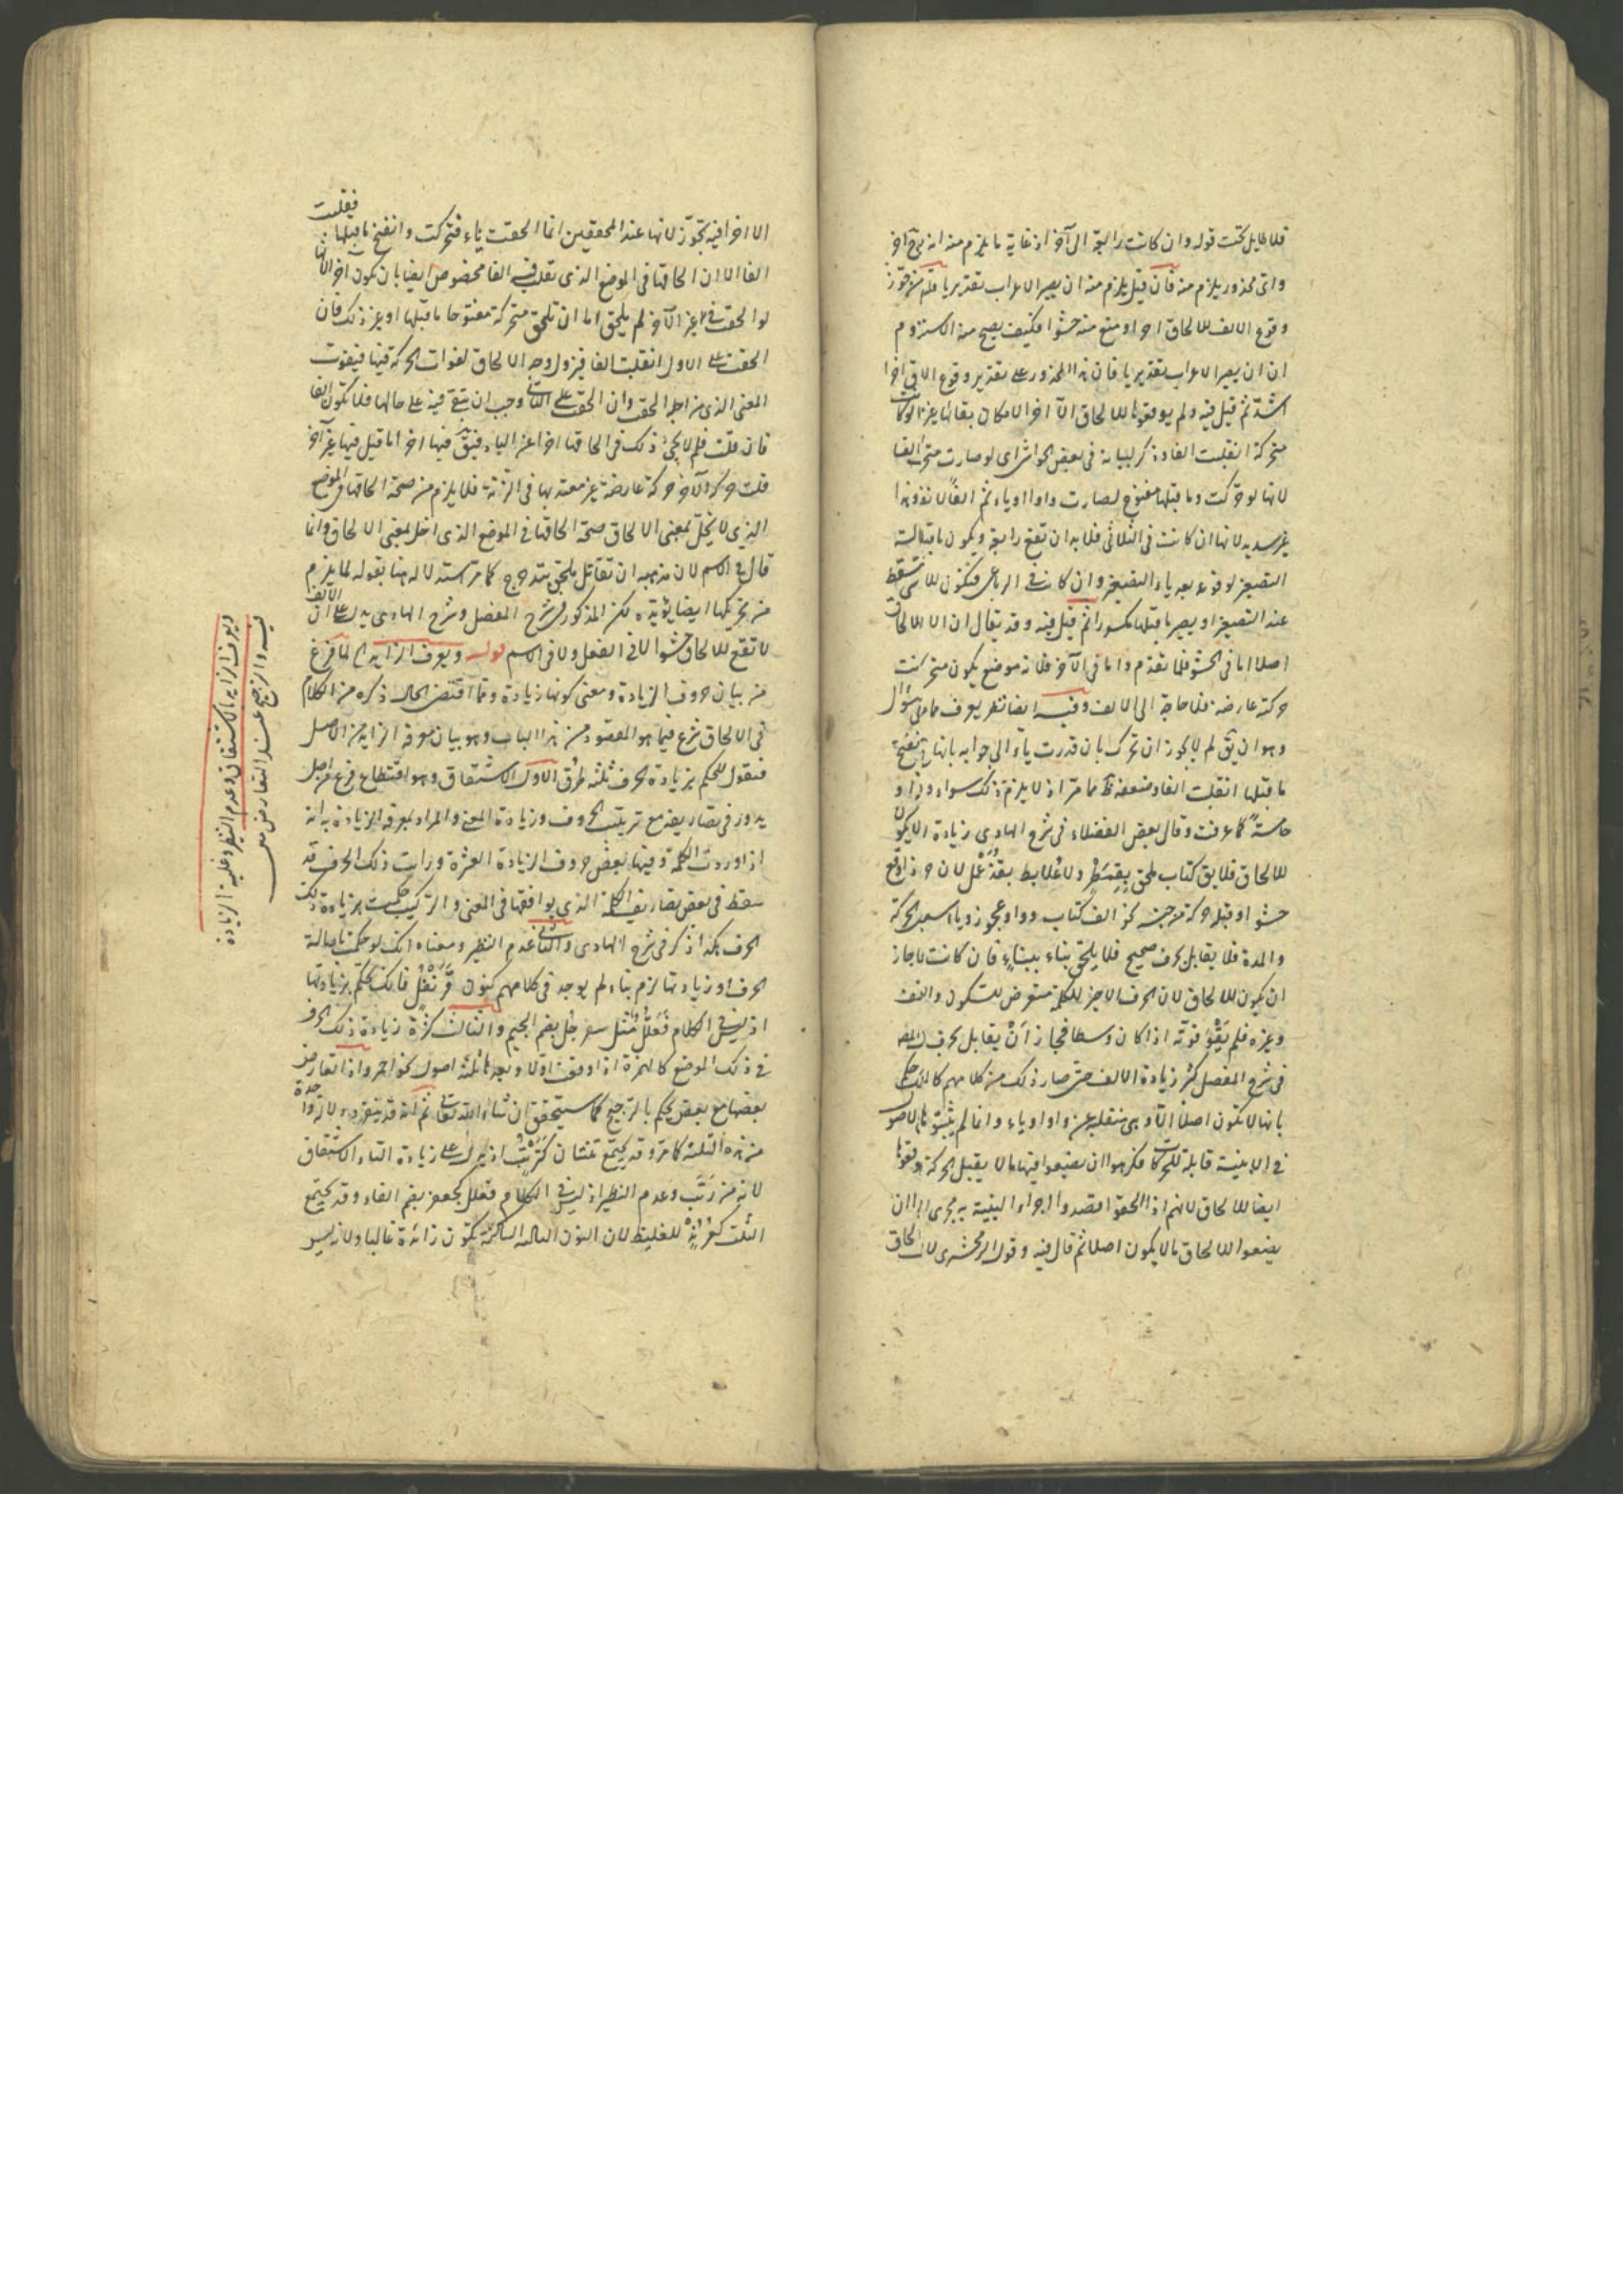 فلا طايل تحت قوله وان كانت رابعة الى آخر اذ غاية ما يلزم منه انه بيّ آخر
واىّ محذور يلزم منه فان قيل يلزم منه ان يصير الاعراب تقديريا قلنا من جوّز
وقوع الالف للالحاق اخرا ومنع منه حشوا فكيف يصح منه الاستلزام
ان ان يصير الاعراب تقديريا فان هذا المحذور على تقدير وقوع الالف اخرا
اشدّ ثم قيل فيه ولم يوقعوها للالحاق الّا اخر الامكان بقائها غير
متحركة انقلبت الفا وذكر لبيانه فى بعض الحواشى اى لو صارت متحركة الفا
لانها لو حركت وما قبلها مفتوح لصارت واوا او ياء ثم الفا لا نفوذ
غير سديد لانها ان كانت فى الثلاثى فلا بد ان تقع رابعة ويكون ما قبل
التصغير لوقوعه بعد ياء التصغير وان كان فى الرباعى فيكون للا تسقط
عند التصغير او يصير ما قبلها مكسورا ثم قيل فيه وقد يقال ان الا للالحاق
اصلا اما فى الحشو فلما تقدم واما فى الآخر فلانه موضع يكون متحركت
حركة عارضة فلا حاجة الى الالف وفيه ايضا نظر يعرف مما مر سؤال
وهو ان يق لم لا يجوز ان تحرك بان قدرت ياء الى جوابه بانها انفتح
ما قبلها انقلبت الفا وضعفه ظ مما مرّ اذ لا يلزم ذلك سواء
خامسة كما عرفت وقال بعض الفضلاء فى شرح الهادى زيادة الا يكون
للالحاق فلا يق كتاب ملحق بقمطر ولا علابط بقذعمل لان حرف اذا وقع
حشوا وقبله حركة من جنسه نحو الف كتاب وواو عجوز ويا سعيد الحركة
والمدة فلا يقابل بحرف صحيح فلا يلحق بناء ببناء فان كانت جاز
ان يكون للالحاق لان الحرف الاخير للكلمة متعرض للسكون والضعف
وغيره فلم يقو قوته اذا كان وسطا فجاز ان يقابل بحرف المص
فى شرح المفصل كثر زيادة الالف حتى صار ذلك من كلامهم كالحكم
بانها لا تكون اصلا الّا وهى منقلبة عن واو او ياء وانما لم يثبتوها الاصول
فى الابنية قابلة للحركات فكرهوا ان يضعوا فيها ما لا يقبل الحركة
ايضا للالحاق لانهم اذا الحقوا قصدوا اجراء البنية به مجرى ان
يضعوا للالحاق ما لا يكون اصلا ثم قال فيه وقول الزمخشرى لا للالحاق
فقلبت
الا اخرا فيه تجوّز لانها عند المحققين انما الحقت ياء فتحركت وانفتح ما قبلها
الفا الا ان الحاقها فى الموضع الذى تقلب فيه الفا مخصوص ايضا بان يكون اخرا لانها
لو الحقت فى غير الآخر لم يلحق اما ان تلحق متحركة مفتوحا ما قبلها او غير ذلك فان
الحقت على الاول انقلبت الفا فيزول وجه الالحاق لفوات الحركة فيها فيفوت
المعنى الذى من اجله الحقت وان الحقت على الثانى وجب ان تبقى فيه على حالها فلا تكون الفا
فان قلت فلم لا يجئ ذلك فى الحاقها اخرا عن الياء فيبق فيها اخرا ما قيل فيها غير آخر
قلت حركة الآخر حركة عارضة غير معتد بها فى الزنة فلا يلزم من صحة الحاقها فى الموضع
الذى لا يخلّ بمعنى الالحاق صحة الحاقها فى الموضع الذى اخل بمعنى الالحاق وانما
قال فى الاسم لان مذهبه ان تقاتل ملحق بتدحرج كما مر استدلاله هنا بقوله لما يلزم
من تحريكها ايضا يؤيده لكن المذكور فى شرح المفصل وشرح الهادى يدل على ان الالف
لا تقع للالحاق حشوا لا فى الفعل ولا فى الاسم قوله ويعرف الزايد الخ لما فرغ
من بيان حروف الزيادة ومعنى كونها زيادة وما اقتضى الحال ذكره من الكلام
فى الالحاق شرع فيما هو المقصود من هذا الباب وهو بيان معرفة الزايد من الاصل
فنقول للحكم بزيادة الحرف ثلثه طرق الاول الاشتقاق وهو اقتطاع فرع من اصل
يدور فى تصاريفه مع ترتيب الحروف وزيادة المعنى والمراد بمعرفة الزيادة به انه
اذا وردت الكلمة وفيها بعض حروف الزيادة العشرة ورايت ذلك الحرف قد
سقط فى بعض تصاريف الكلمة الذى يوافقها فى المعنى والتركيب حكمت بزيادة ذلك
الحرف هكذا ذكر فى شرح الهادى والثانى عدم النظير ومعناه انك لو حكمت باصالة
الحرف او زيادتها لزم بناء لم يوجد فى كلامهم كنون قرنفل فانك تحكم بزيادتها
اذ ليس فى الكلام فعلل مثل سفرجل بضم الجيم والثالث كثرة زيادة ذلك الحرف
فى ذلك الموضع كالهمزة اذا وقعت اولا وبعدها ثلثه اصول نحو احمر واذا تعارض
بعضها مع بعض يحكم بالترجيح كما سيتحقق ان شاء الله تعالى ثم انه قد ينفرد واحدة
من هذه الثلثة كما مرّ وقد يجتمع ثنتان كترتب اذ يدل على زيادة التاء الاشتقاق
لانه من رتب وعدم النظير اذ ليس فى الكلام فعلل كجعفر بضم الفاء وقد يجتمع
الثلث كعرند للغليظ لان النون الثالثة الساكنة تكون زائدة غالبا ولانه ليس
ويعرف الزايد بالاشتقاق وعدم النظير وغلبة الزيادة
فيه والترجيح عند التعارض